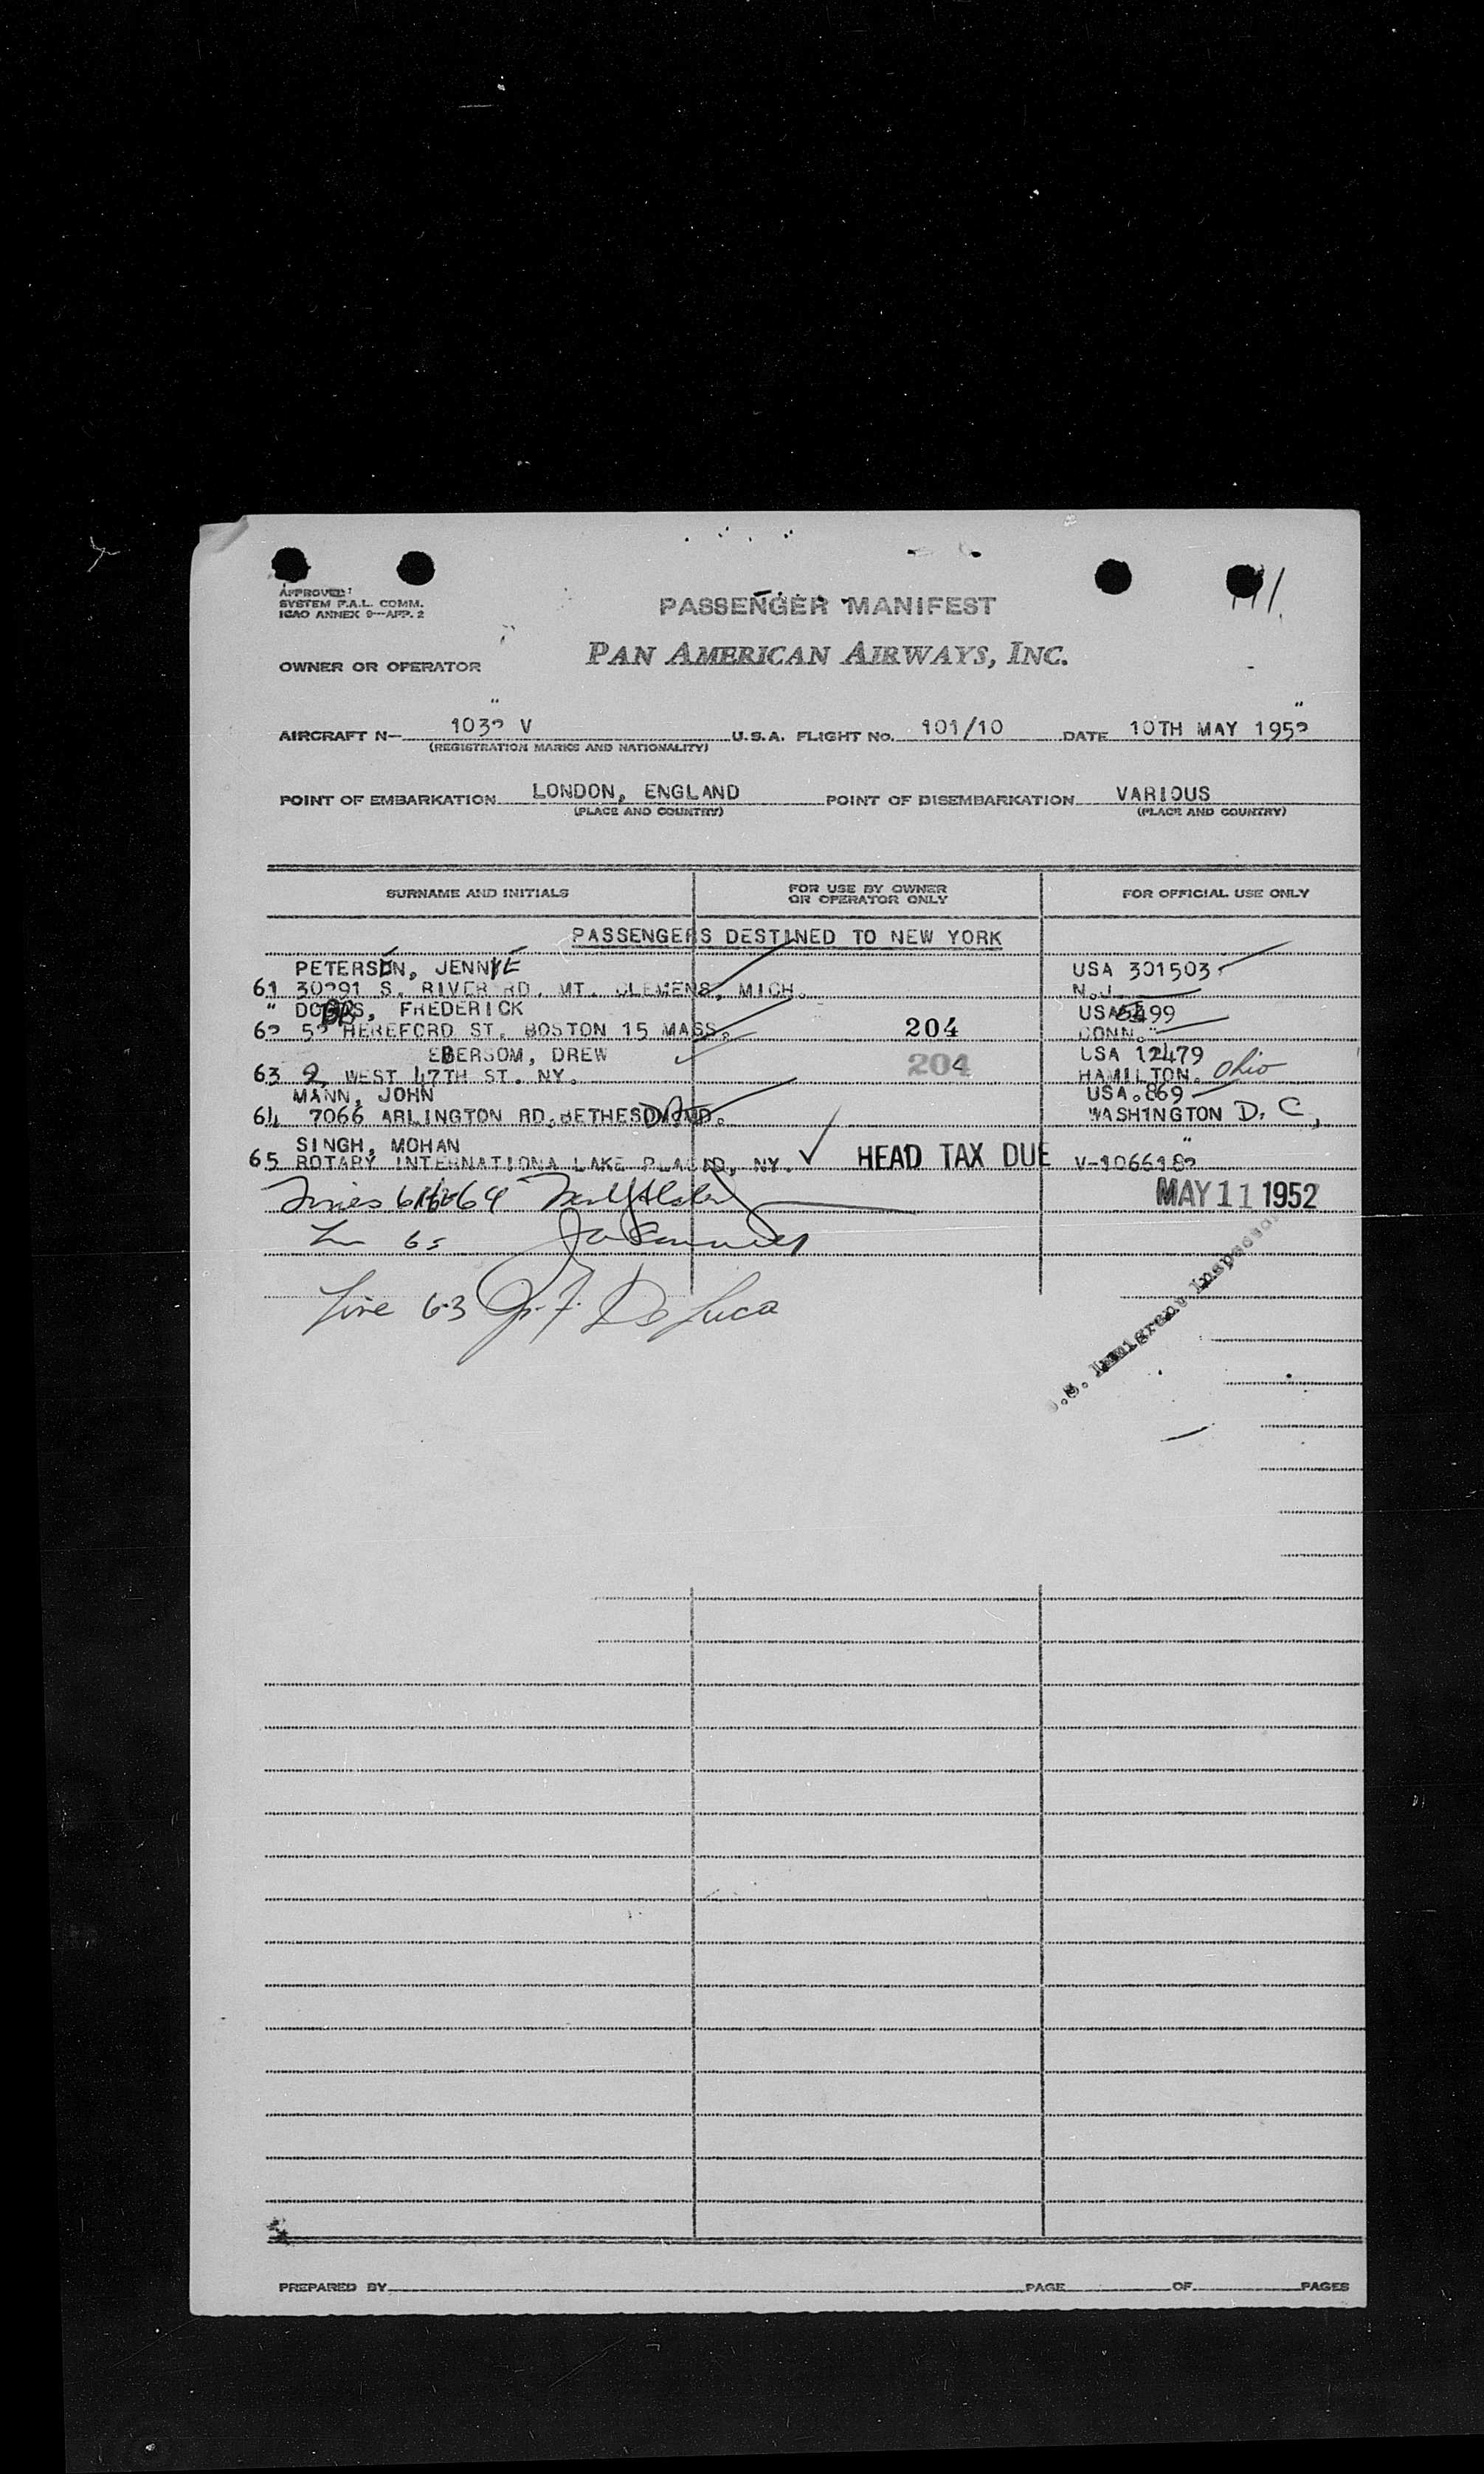 APPROVED:
SYSTEM F.A.L. COMM.
ICAO ANNEX 9—APP. 2
PASSENGER MANIFEST
OWNER OR OPERATOR PAN AMERICAN AIRWAYS, INC.
AIRCRAFT N— 1032 V U.S.A. FLIGHT NO. 101/10 DATE 10TH MAY 1952
(REGISTRATION MARKS AND NATIONALITY)
POINT OF EMBARKATION LONDON, ENGLAND POINT OF DISEMBARKATION VARIOUS
(PLACE AND COUNTRY) (PLACE AND COUNTRY)
SURNAME AND INITIALS FOR USE BY OWNER OR OPERATOR ONLY FOR OFFICIAL USE ONLY
PASSENGERS DESTINED TO NEW YORK
PETERSON, JENNYE USA 301503
61 30291 S. RIVER RD. MT. CLEMENS, MICH. N.J.
" DOBBS, FREDERICK USA 5499
62 52 HEREFORD ST. BOSTON 15 MASS. 204 CONN.
EBERSOM, DREW USA 12479
63 2 WEST 47TH ST. NY. 204 HAMILTON. Ohio
MANN, JOHN USA.869
64 7066 ARLINGTON RD. BETHESDA MD. WASHINGTON D. C,
SINGH, MOHAN
65 ROTARY INTERNATIONA LAKE PLACID, NY. HEAD TAX DUE V-1066182
Lines 61 64 MAY 11 1952
65
Line 63 De Luca
.S. Immigrant Inspector
PREPARED BY PAGE OF PAGES